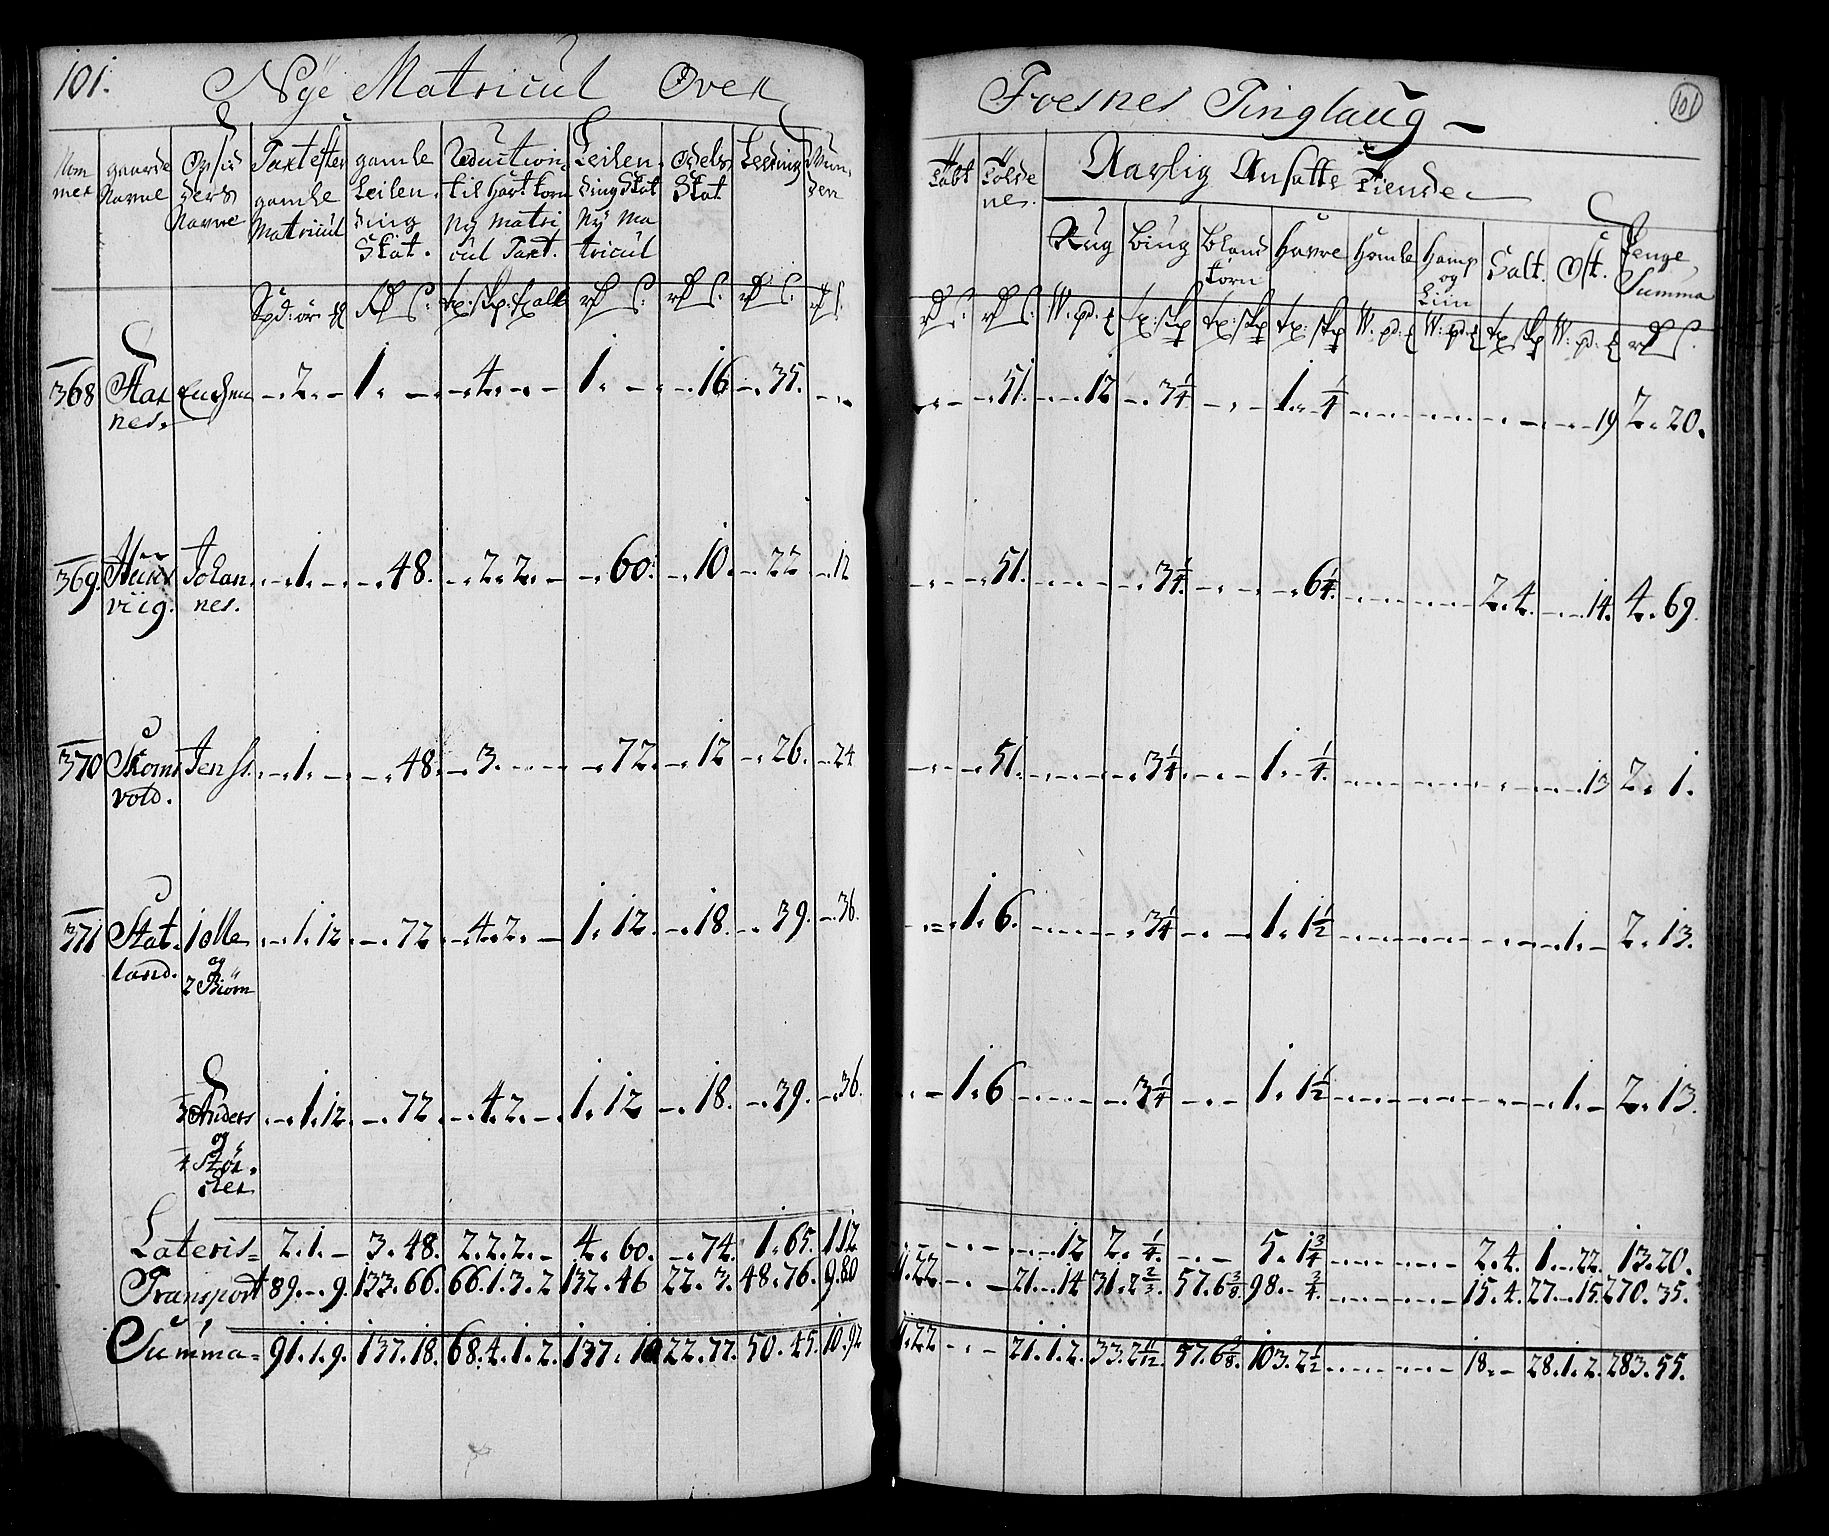 101. Nÿe Matricul Over
Fosnes Tinglaug 101
gaarde Navne
Opsid ders Navne
Taxt efter gamle Matricul
gamle Leilen. ding Skat.
Reduction til hart korn nÿ matri cul Taxt.
Leilen. ding Skat nÿ ma tricul
Odels Skat
Leeding
Aarlig Ansatte Tiende
Rug Biug Bland korn Havre Homle Hamp og Liin Salt. Ost. Penge Summa
368 nes. - 2. - 1. - 4. - 1. - 16 - 35. - 51. - 12 - 3¼ - 1. ¼ - 19 2. 20.
369. viig. Johan nes. - 1. - 48. - 2. 2. - 60. - 10. - 22 - 12 - 51. - 3¼. - 6¼. - 2. 4. - 14. 4. 69.
370 vold. Jens - 1. - 48. - 3. - 72. - 12 - 26. - 24 - 51. - 3¼. - 1. ¼. - 13 2. 1.
371 Stat. land. 1 olle og 2 Biörn - 1. 12. - 72 - 4. 2. - 1. 12. - 18. - 39. - 36. - 1. 6. - 3¼ - 1. 1½ - 1. - 2. 13.
3 Anders og 4 - 1. 12. - 72. - 4. 2. - 1. 12 - 18. - 39. - 36. - 1. 6 - 3¼ - 1. 1½ - 1. - 2. 13.
Lateris = 2. 1. - 3. 48. 2. 2. 2. - 4. 60. - 74. 1. 65. 1.12 - 12 2. ¼. - 5. 1¾ - 2. 4. 1. - 22. 13. 20.
Transport 89. - 9. 133. 66. 66. 1. 3. 2 132. 46 22. 3. 48. 76. 9. 80 11. 22 - 21. - 14 31. 2⅔. 57. 6⅜ 98. - ¾. - 15. 4. 27. - 15. 270. 35.
Summa = 91. 1. 9. 137. 18. 68. 4. 1. 2. 137. 10 22. 77. 50. 45. 10. 92 11. 22 - 21. 1. 2. 33. 2 11/12. 57. 6⅜. 103. 2½ - 18. - 28. 1. 2. 283. 55.